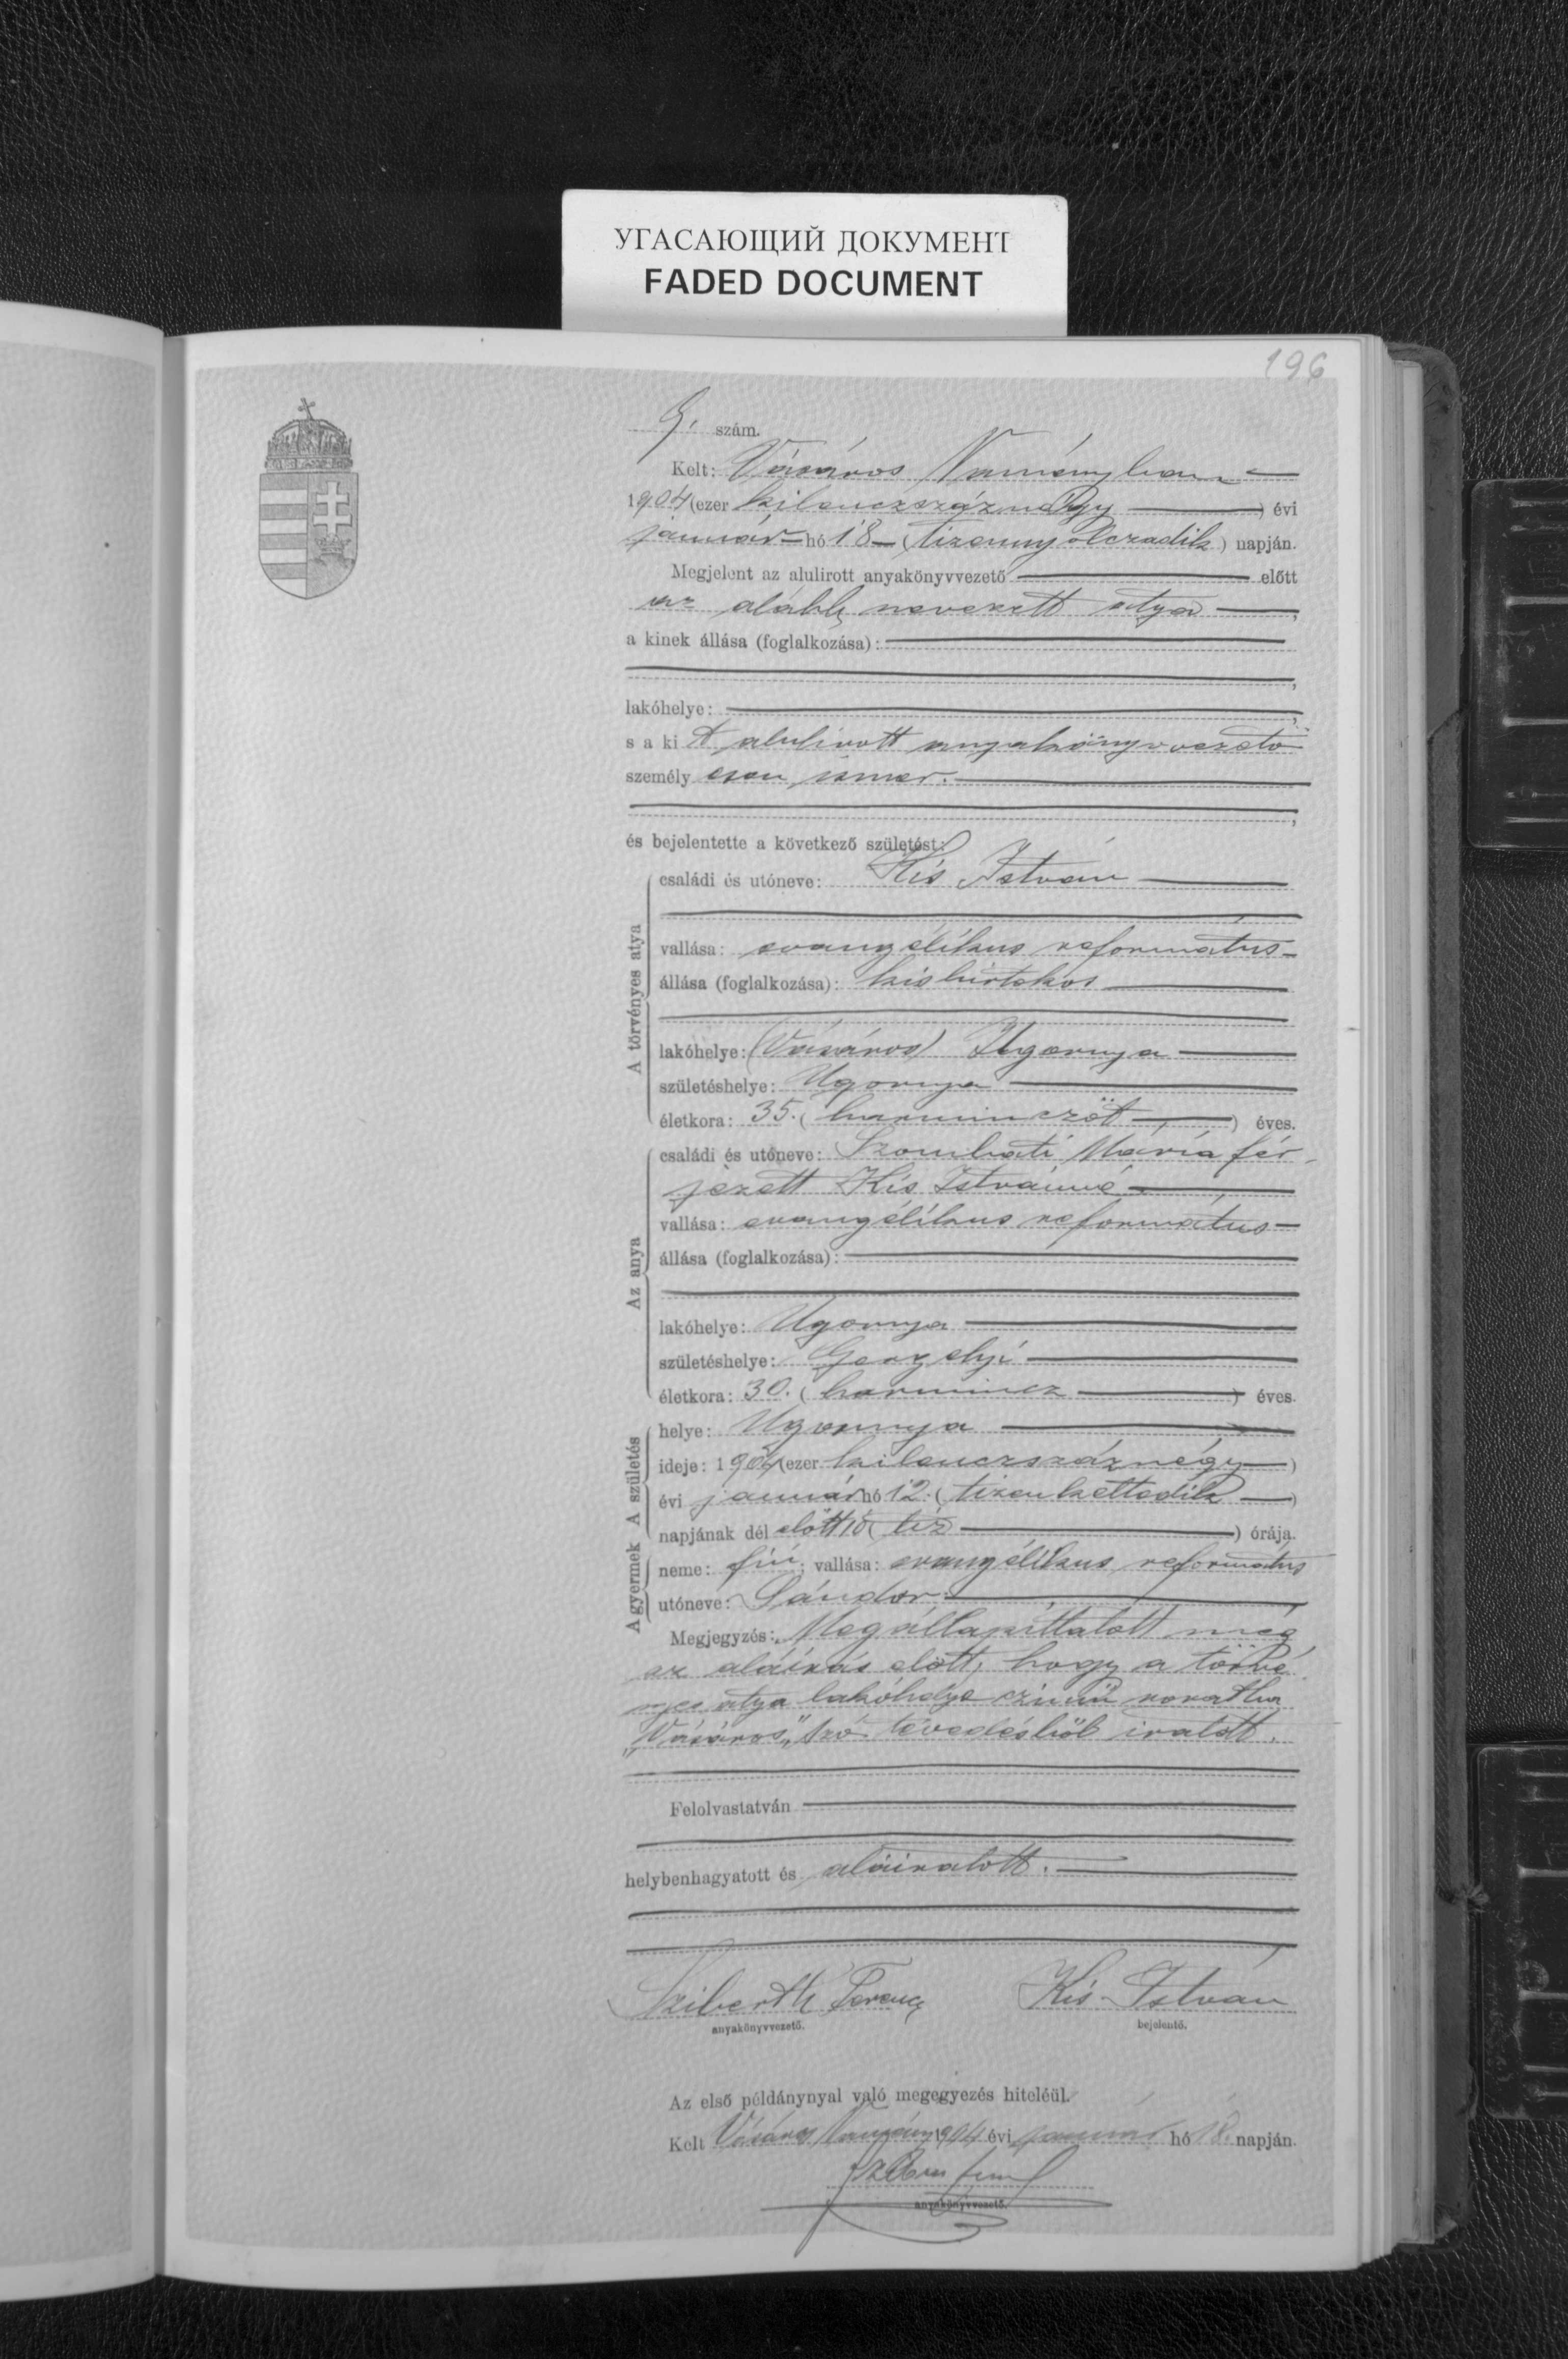 УГАСАЮЩИЙ ДОКУМЕНТ
FADED DOCUMENT
196
9. szám.
Kelt: Vásáros Naményban
1904 (ezer kilenczszáznégy) évi
január hó 18 (tizennyolczadik) napján.
Megjelent az alulirott anyakönyvvezető előtt
az alább nevezett atya,
a kinek állása (foglalkozása):
,
lakóhelye: ,
s a kit alulirott anyakönyvvezető
személyesen ismer.
,
és bejelentette a következő születést:
A törvényes atya
családi és utóneve: Kis István
vallása: evangélikus református
állása (foglalkozása): kisbirtokos
lakóhelye: (Vásáros) Ugornya
születéshelye: Ugornya
életkora: 35. (harminczöt) éves.
Az anya
családi és utóneve: Szombati Mária fér-
jezett Kis Istvánné
vallása: evangélikus református
állása (foglalkozása):
lakóhelye: Ugornya
születéshelye: Gergelyi
életkora: 30. (harmincz) éves.
A születés
helye: Ugornya
ideje: 1904 (ezer kilenczszáznégy)
évi január hó 12. (tizenkettedik)
napjának dél előtt 10 (tíz) órája.
A gyermek
neme: fiú; vallása: evangélikus református
utóneve: Sándor.
Megjegyzés: Megállapíttatott még
az aláírás előtt, hogy a törvé
nyes atya lakóhelye czimű rovatba
„Vásáros" szó tévedésből iratott.
Felolvastatván
helybenhagyatott és aláiratott.
Sziberth Ferencz Kis István
anyakönyvvezető. bejelentő.
Az első példánynyal való megegyezés hiteléül.
Kelt Vásáros Namény 1904 évi január hó 18. napján.
anyakönyvvezető.